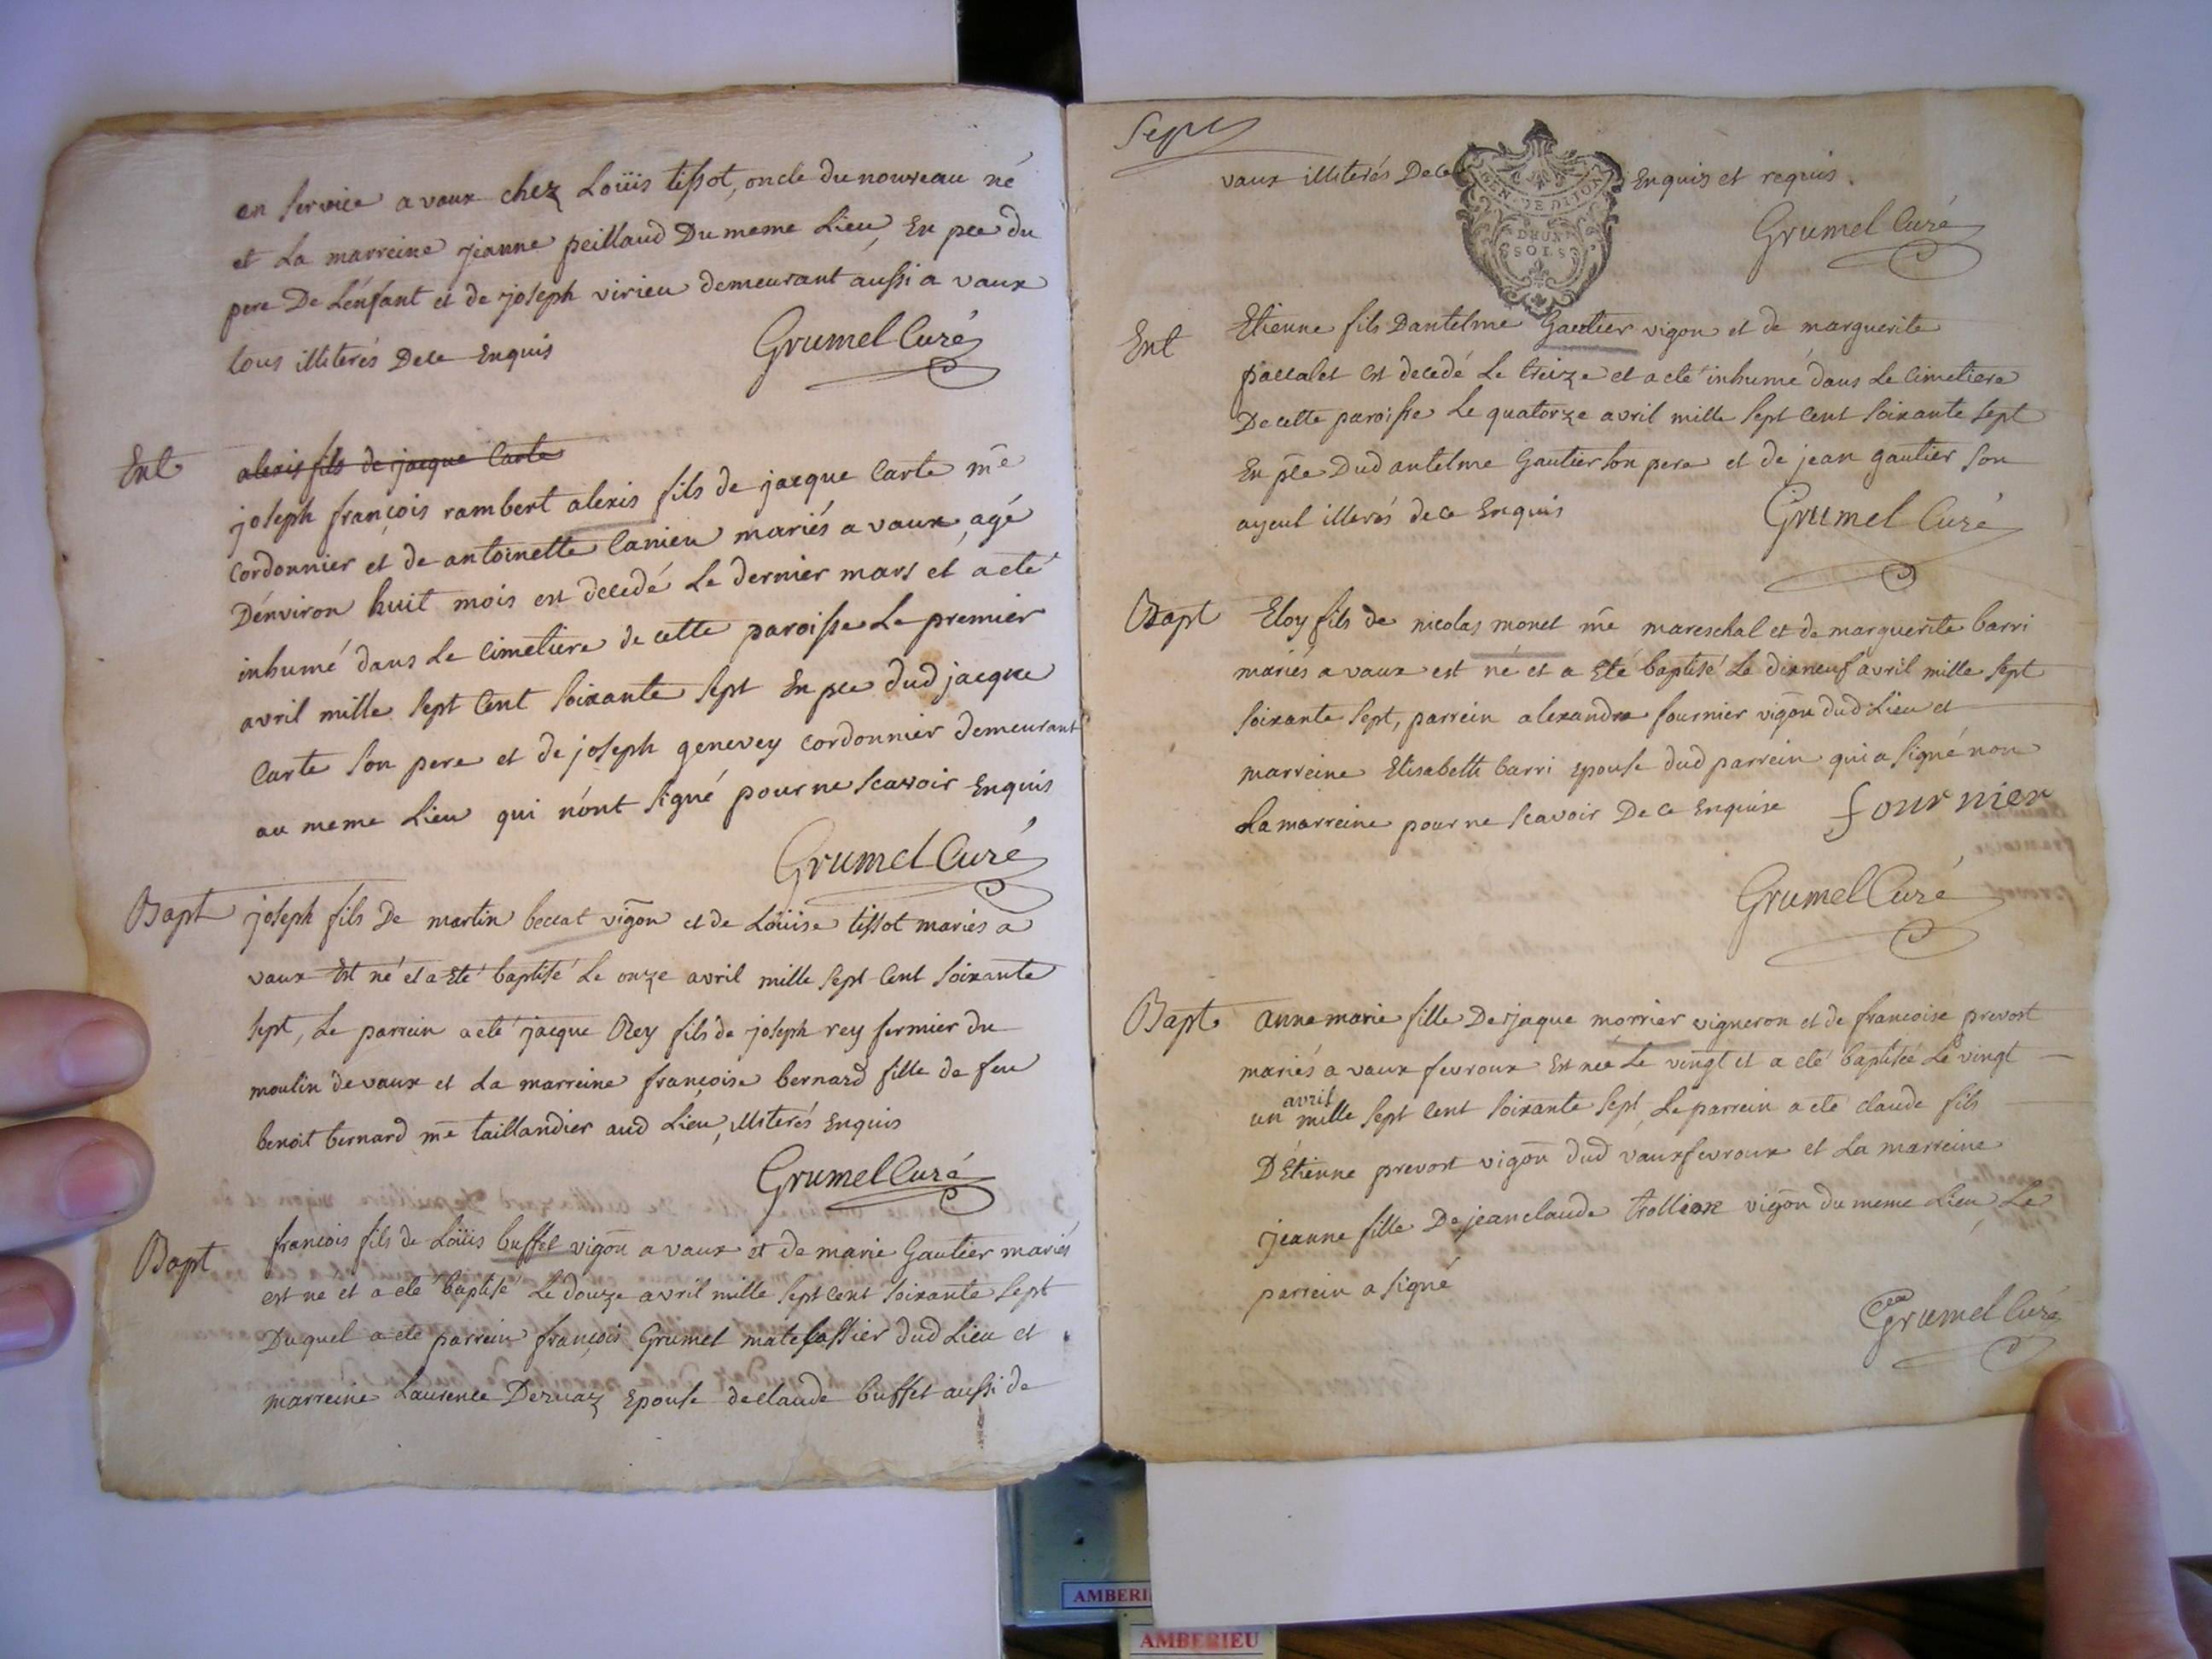 en service a vaux chez Loüis tissot, oncle du nouveau né
et La marreine jeanne peillaud Du meme Lieu, En pce du
pere De L'enfant et de joseph virieu demeurant aussi a vaux
tous illiterés Dece Enquis
Grumel Curé
Ent
alexis fils de jacque Carte
joseph françois rambert alexis fils de jacque Carte me
cordonnier et de antoinette Canieu mariés a vaux, agé
D'environ huit mois est decedé Le dernier mars et a eté
inhumé dans Le Cimetiere de cette paroisse Le premier
avril mille sept Cent soixante sept En pce dud jacque
Carte son pere et de joseph genevey cordonnier demeurant
au meme Lieu qui n'ont signé pour ne scavoir Enquis
Grumel Curé
Bapt joseph fils De martin beccat vigon et de Loüise tissot mariés a
vaux Est né et a Eté baptisé Le onze avril mille sept Cent soixante
sept, Le parrein a eté jacque Rey fils de joseph rey fermier du
moulin de vaux et La marreine françoise bernard fille de feu
benoit bernard me taillandier aud Lieu, illiterés Enquis
Grumel Curé
Bapt francois fils de Loüis buffet vigon a vaux et de marie Gautier mariés
est ne et a eté baptisé Le douze avril mille sept cent soixante sept
Duquel a eté parrein françois Grumel matelassier dud Lieu et
marreine Laurence Dervaz Epouse de claude buffet aussi de
Sept
vaux illiterés Dece Enquis et requis.
GEN. DE DIJON
DEUX
SOLS
Grumel Curé
Ent Etienne fils Dantelme Gautier vigon et de marguerite
paccalet est decedé Le treize et a eté inhumé dans Le Cimetiere
De cette paroisse Le quatorze avril mille sept Cent soixante sept
En pce Dud antelme Gautier son pere et de jean gautier son
ayeul illerés dece Enquis
Grumel Curé
Bapt Eloy fils de nicolas monet me mareschal et de marguerite barri
mariés a vaux est né et a Eté baptisé Le dixneuf avril mille sept
soixante sept, parrein alexandre fournier vigon dud Lieu et
marreine Elisabette barri epouse dud parrein qui a signé non
La marreine pour ne scavoir Dece Enquise fournier
Grumel Curé
Bapt. anne marie fille De jaque morrier vigneron et de francoise prevost
mariés a vaux fevroux Est née Le vingt et a eté baptisée Le vingt
avril
un mille sept Cent soixante sept, Le parrein a eté claude fils
D'Etienne prevost vigon dud vauxfevroux et La marreine
jeanne fille De jeanclaude trolliex vigon du meme Lieu Le
parrein a signé
Grumel Curé
AMBERI
AMBERIEU